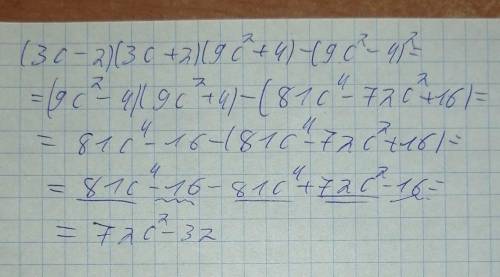 (3c-2)(3c+2)(9c²+4)-(9c²-4)²=
=(9c²-4)(9c²+4)-(81c⁴-72c²+16)=
= 81c⁴-16-(81c⁴-72c²+16)=
= 81c⁴-16-81c⁴+72c²-16=
= 72c²-32